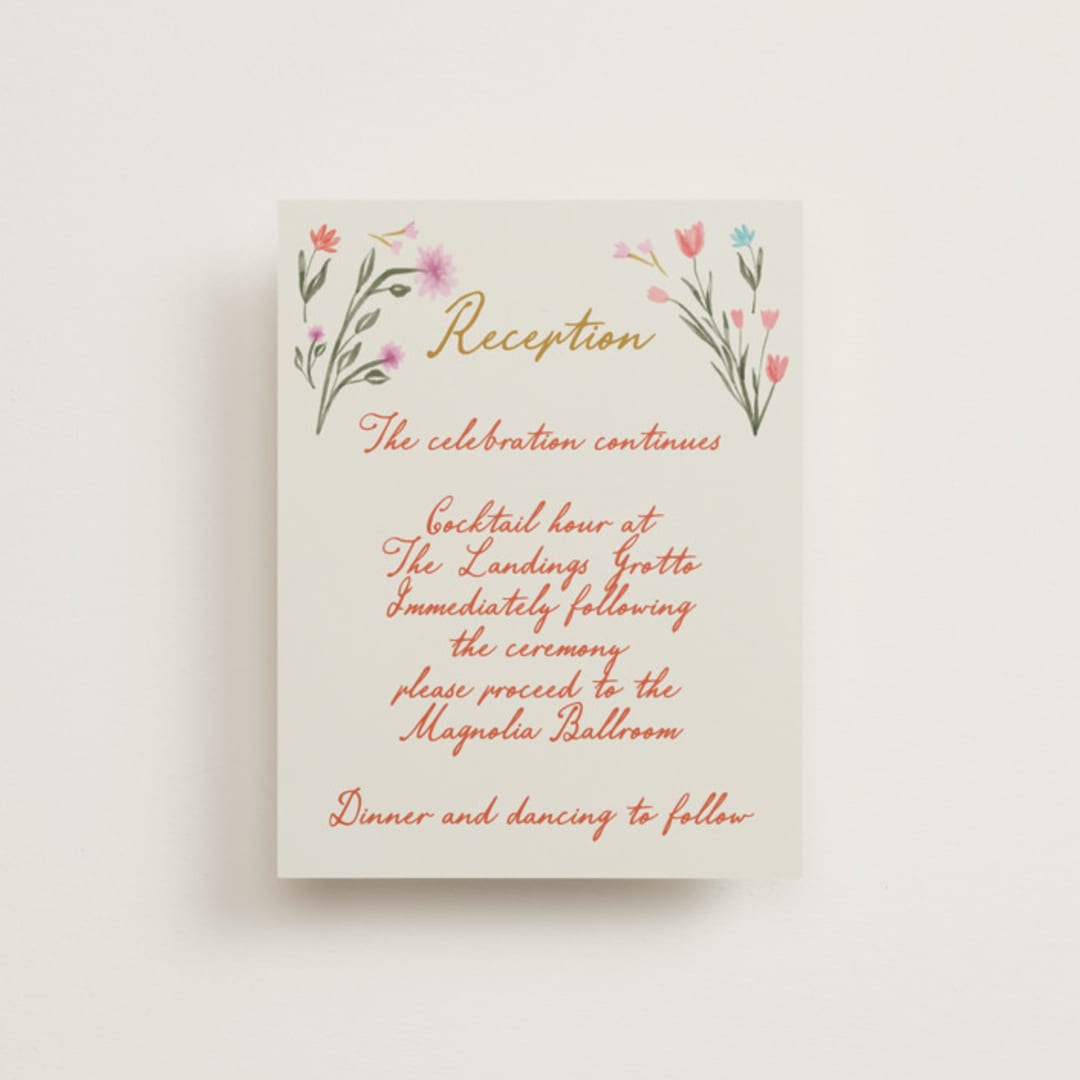 Reception
The celebration continues
Cocktail hour at
The Landings Grotto
Immediately following
the ceremony
please proceed to the
Magnolia Ballroom
Dinner and dancing to follow